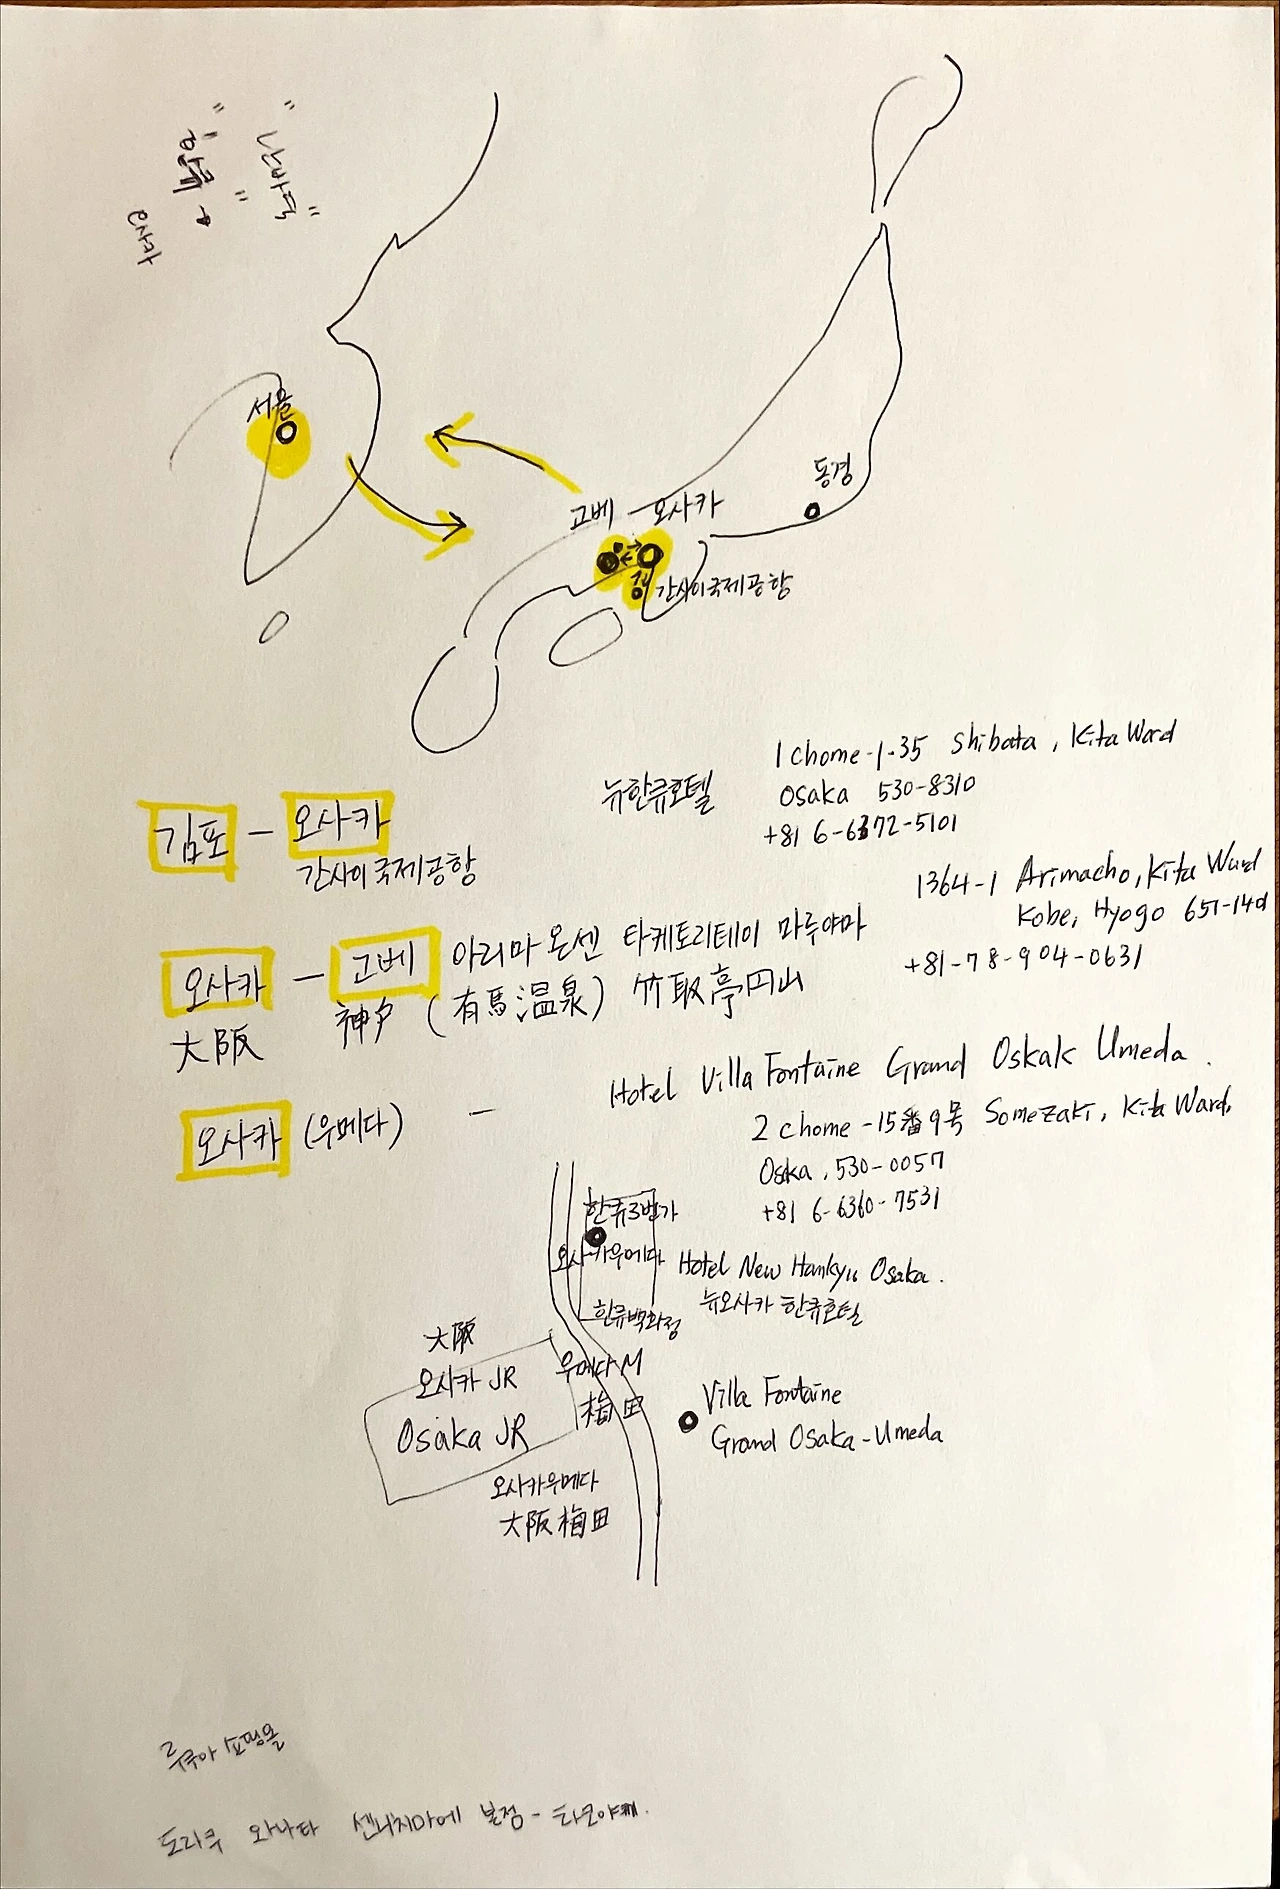 "난바역"
서울
동경
고베 - 오사카
간사이국제공항
뉴한큐호텔
1 chome-1-35 Shibata, Kita Ward
Osaka 530-8310
+81 6-6372-5101
김포 - 오사카
간사이국제공항
1364-1 Arimacho, Kita Ward
Kobe, Hyogo 651-1401
+81-78-904-0631
오사카 - 고베 아리마온센 타케토리테이 마루야마
大阪 神戶 (有馬温泉) 竹取亭円山
Hotel Villa Fontaine Grand Oskak Umeda.
오사카 (우메다) -
2 chome-15番9号 Somezaki, Kita Ward,
Oska, 530-0057
+81 6-6360-7531
한큐3번가
오사카우메다
Hotel New Hankyu Osaka.
뉴오사카 한큐호텔
한큐백화점
大阪
오사카 JR
Osaka JR
우메다 M
梅田
Villa Fontaine
Grand Osaka-Umeda
오사카우메다
大阪梅田
루쿠아 쇼핑몰
도리쿠 와나타 센니치마에 본점 - 타코야끼.